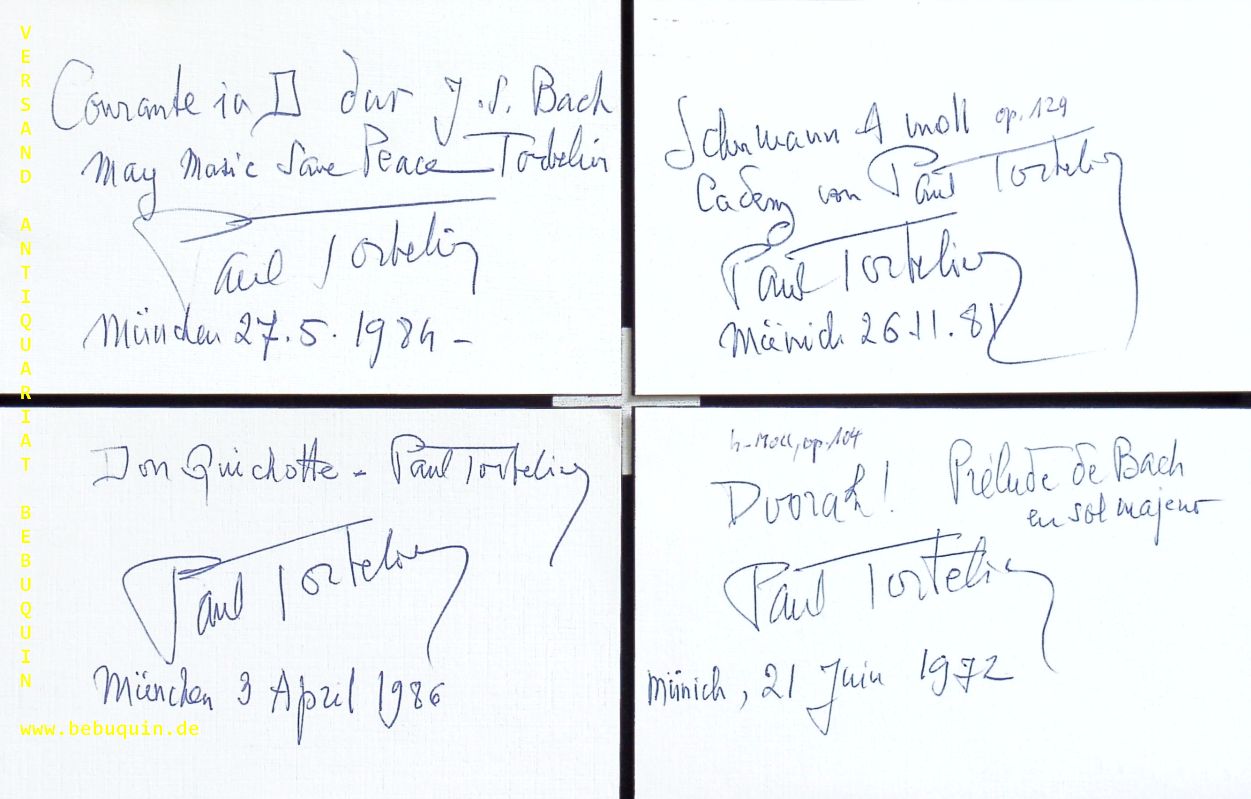 Courante in D dur J.S. Bach
May Music Save Peace Tortelier
Paul Tortelier
München 27.5.1984 -
Schumann A moll op. 129
Cadenz von Paul Tortelier
Paul Tortelier
Münich 26.11.81
Don Quichotte - Paul Tortelier
Paul Tortelier
München 3 April 1986
h-Moll, op. 104
Dvorak! Prélude de Bach
en sol majeur
Paul Tortelier
Münich, 21 Juin 1972
VERSAND ANTIQUARIAT BEBUQUIN
www.bebuquin.de